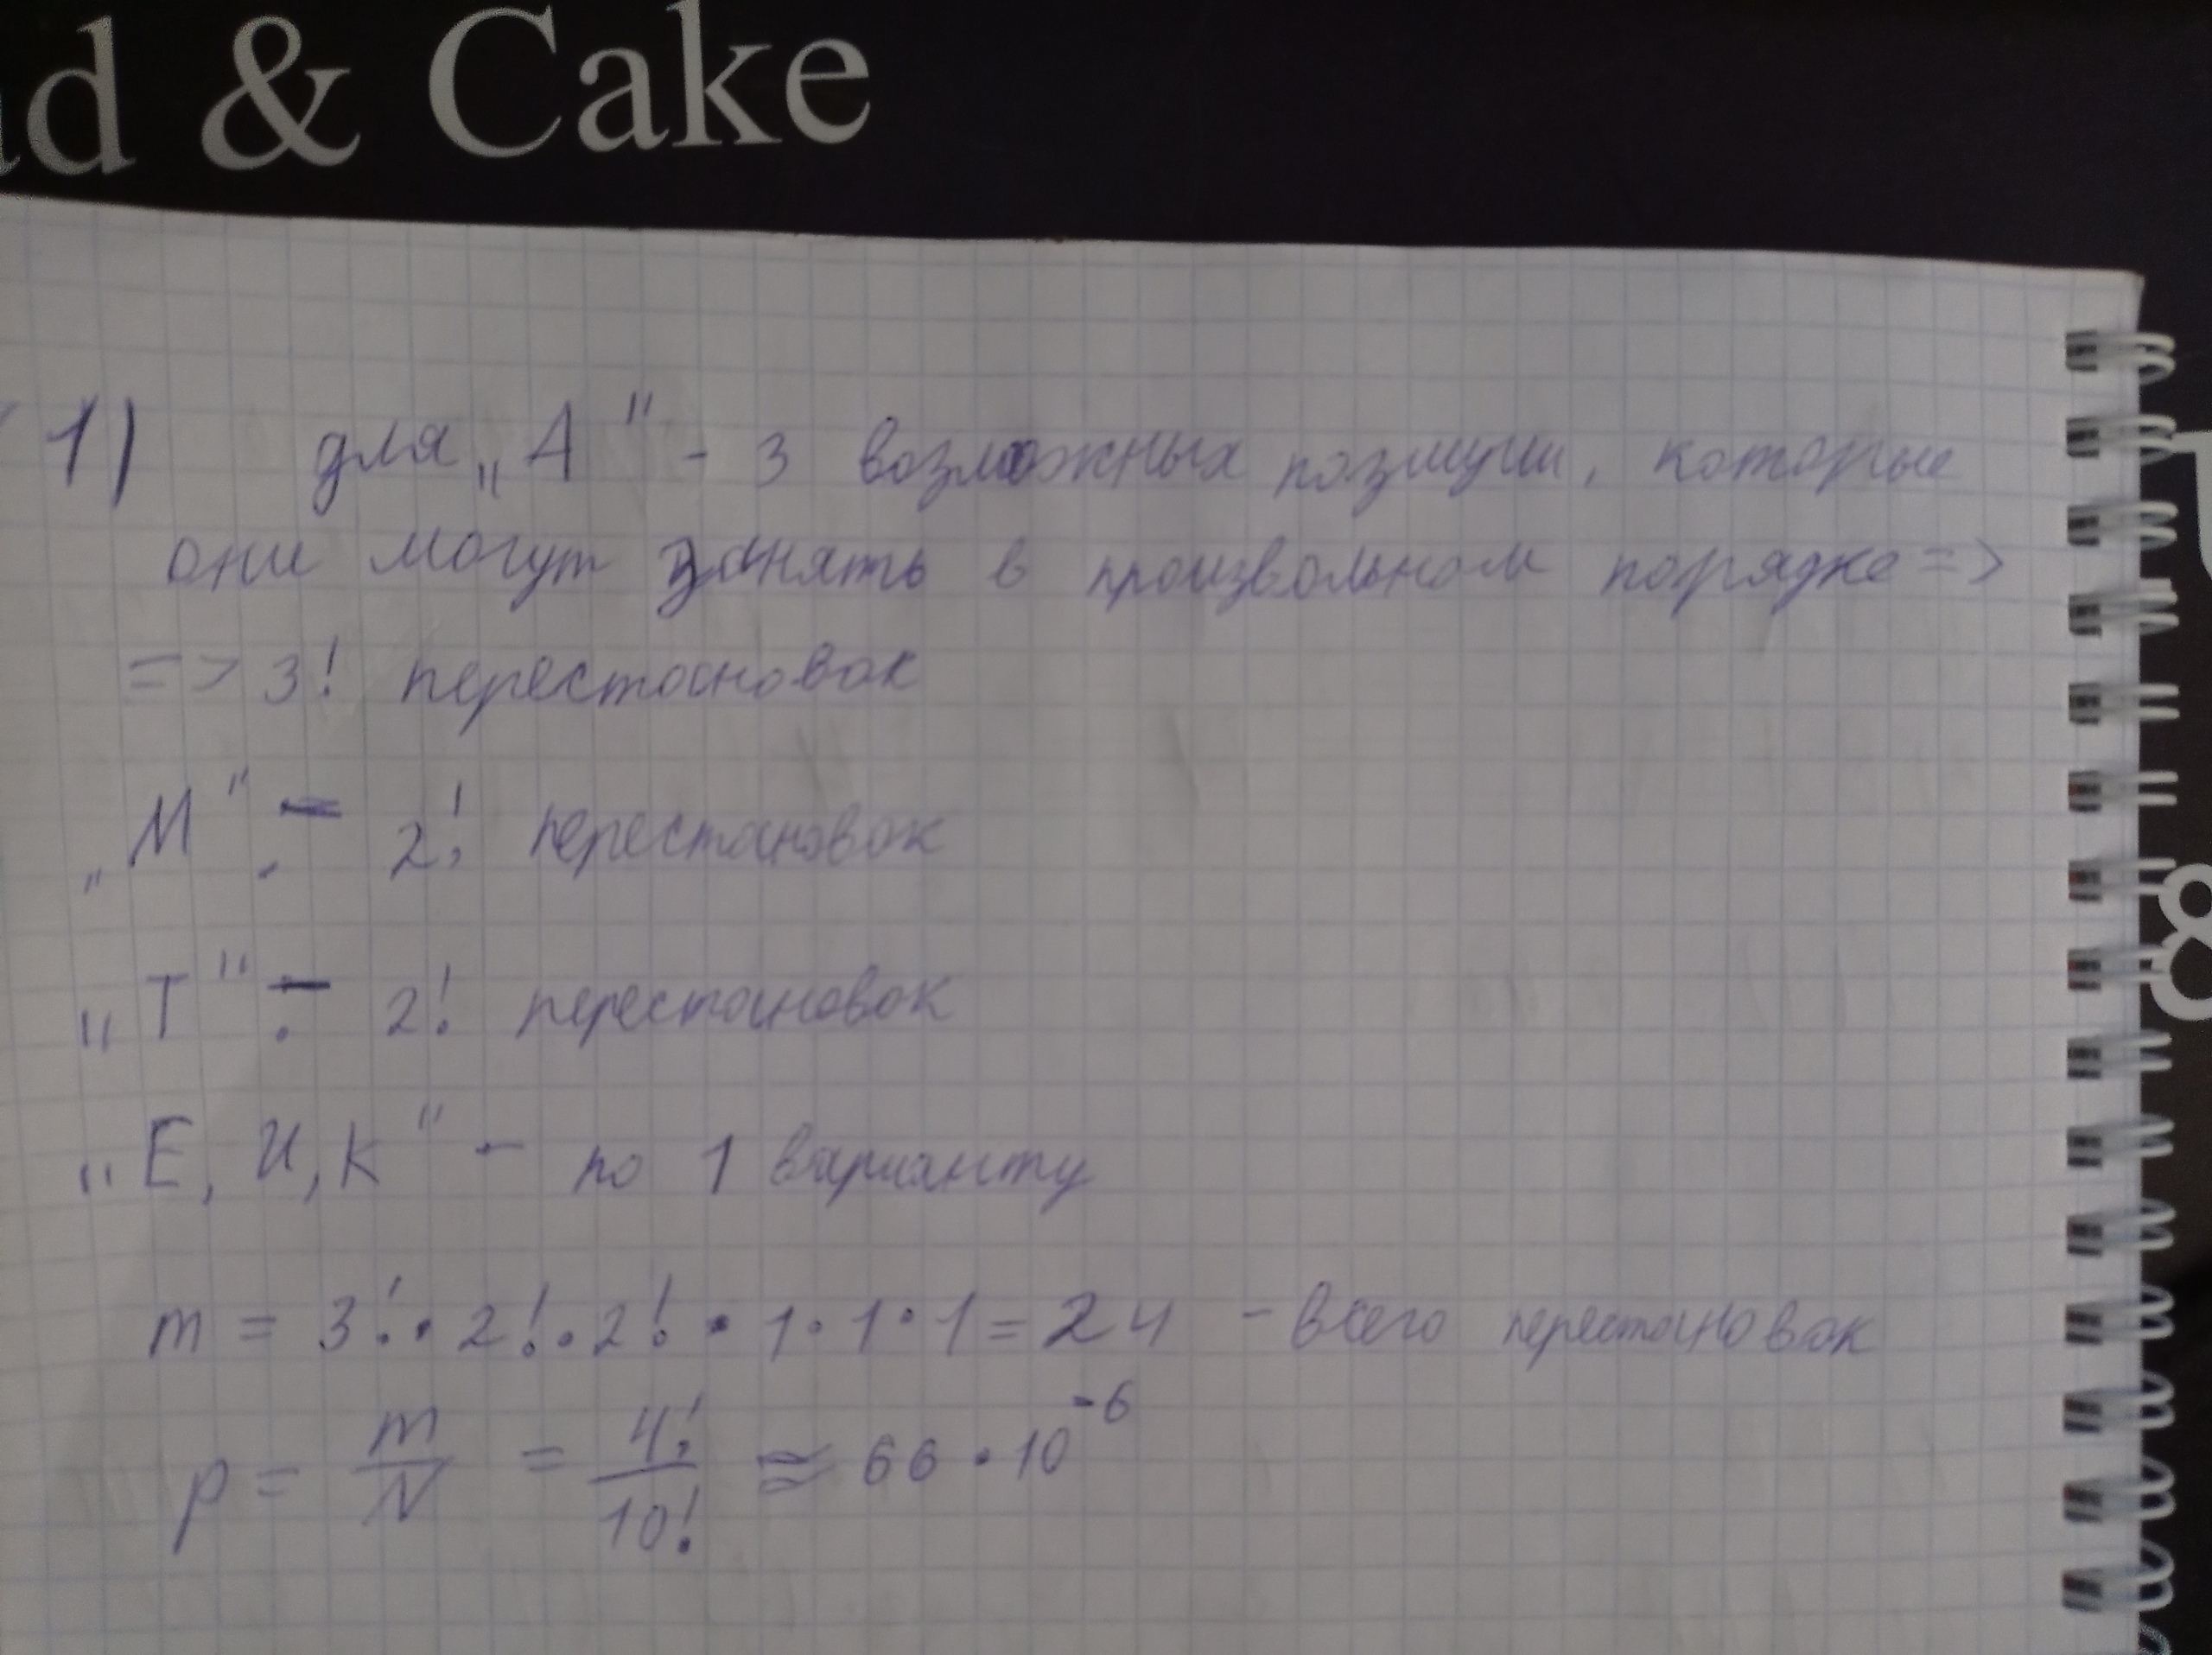 d & Cake
1) для „А" - 3 возможных позиции, которые
они могут занять в произвольном порядке =>
=> 3! перестановок
„М" - 2! перестановок
„Т" - 2! перестановок
„Е, И, К" - по 1 варианту
m = 3! · 2! · 2! · 1 · 1 · 1 = 24 - всего перестановок
p = m/N = 4!/10! ≈ 66 · 10^-6
&